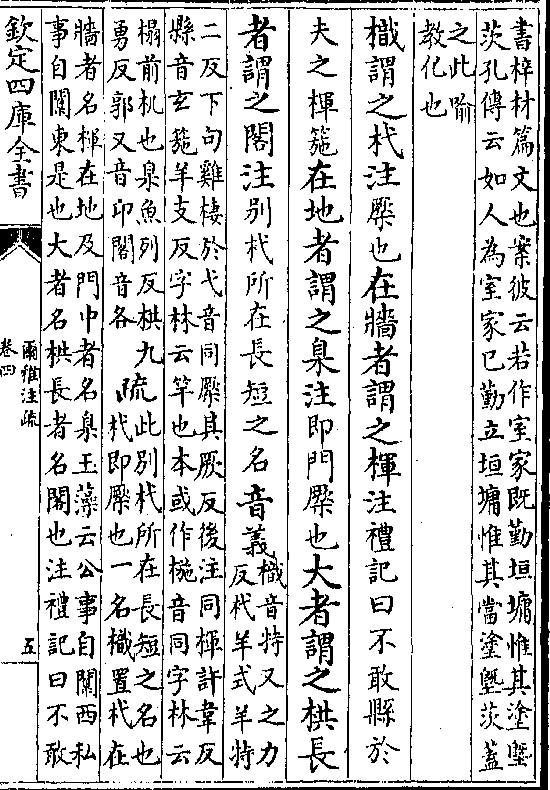 書梓材篇文也案彼云若作室家既勤垣墉惟其塗塈
茨孔傳云如人為室家已勤立垣墉惟其當塗塈茨蓋
之此喻
教化也
樴謂之杙注橜也在牆者謂之楎注禮記曰不敢縣於
夫之楎箷在地者謂之臬注即門橜也大者謂之栱長
者謂之閣注别杙所在長短之名音義樴音特又之力
反杙羊式羊特
二反下句雞棲於弋音同橜其厥反後注同楎許韋反
縣音玄箷羊支反字林云竿也本或作椸音同字林云
榻前机也臬魚列反栱九
勇反郭又音邛閣音各
疏此别杙所在長短之名也
杙即橜也一名樴置杙在
牆者名楎在地及門中者名臬玉藻云公事自闑西私
事自闑東是也大者名栱長者名閣也注禮記曰不敢
欽定四庫全書
爾雅注疏
卷四
五